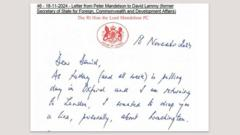 46 - 18-11-2024 - Letter from Peter Mandelson to David Lammy (former
Secretary of State for Foreign, Commonwealth and Development Affairs)
The Rt Hon the Lord Mandelson PC
18 November
Dear David,
As today (and all week) is polling
day in Oxford and I am returning
to London, I wanted to drop you
a line, personally, about Washington.